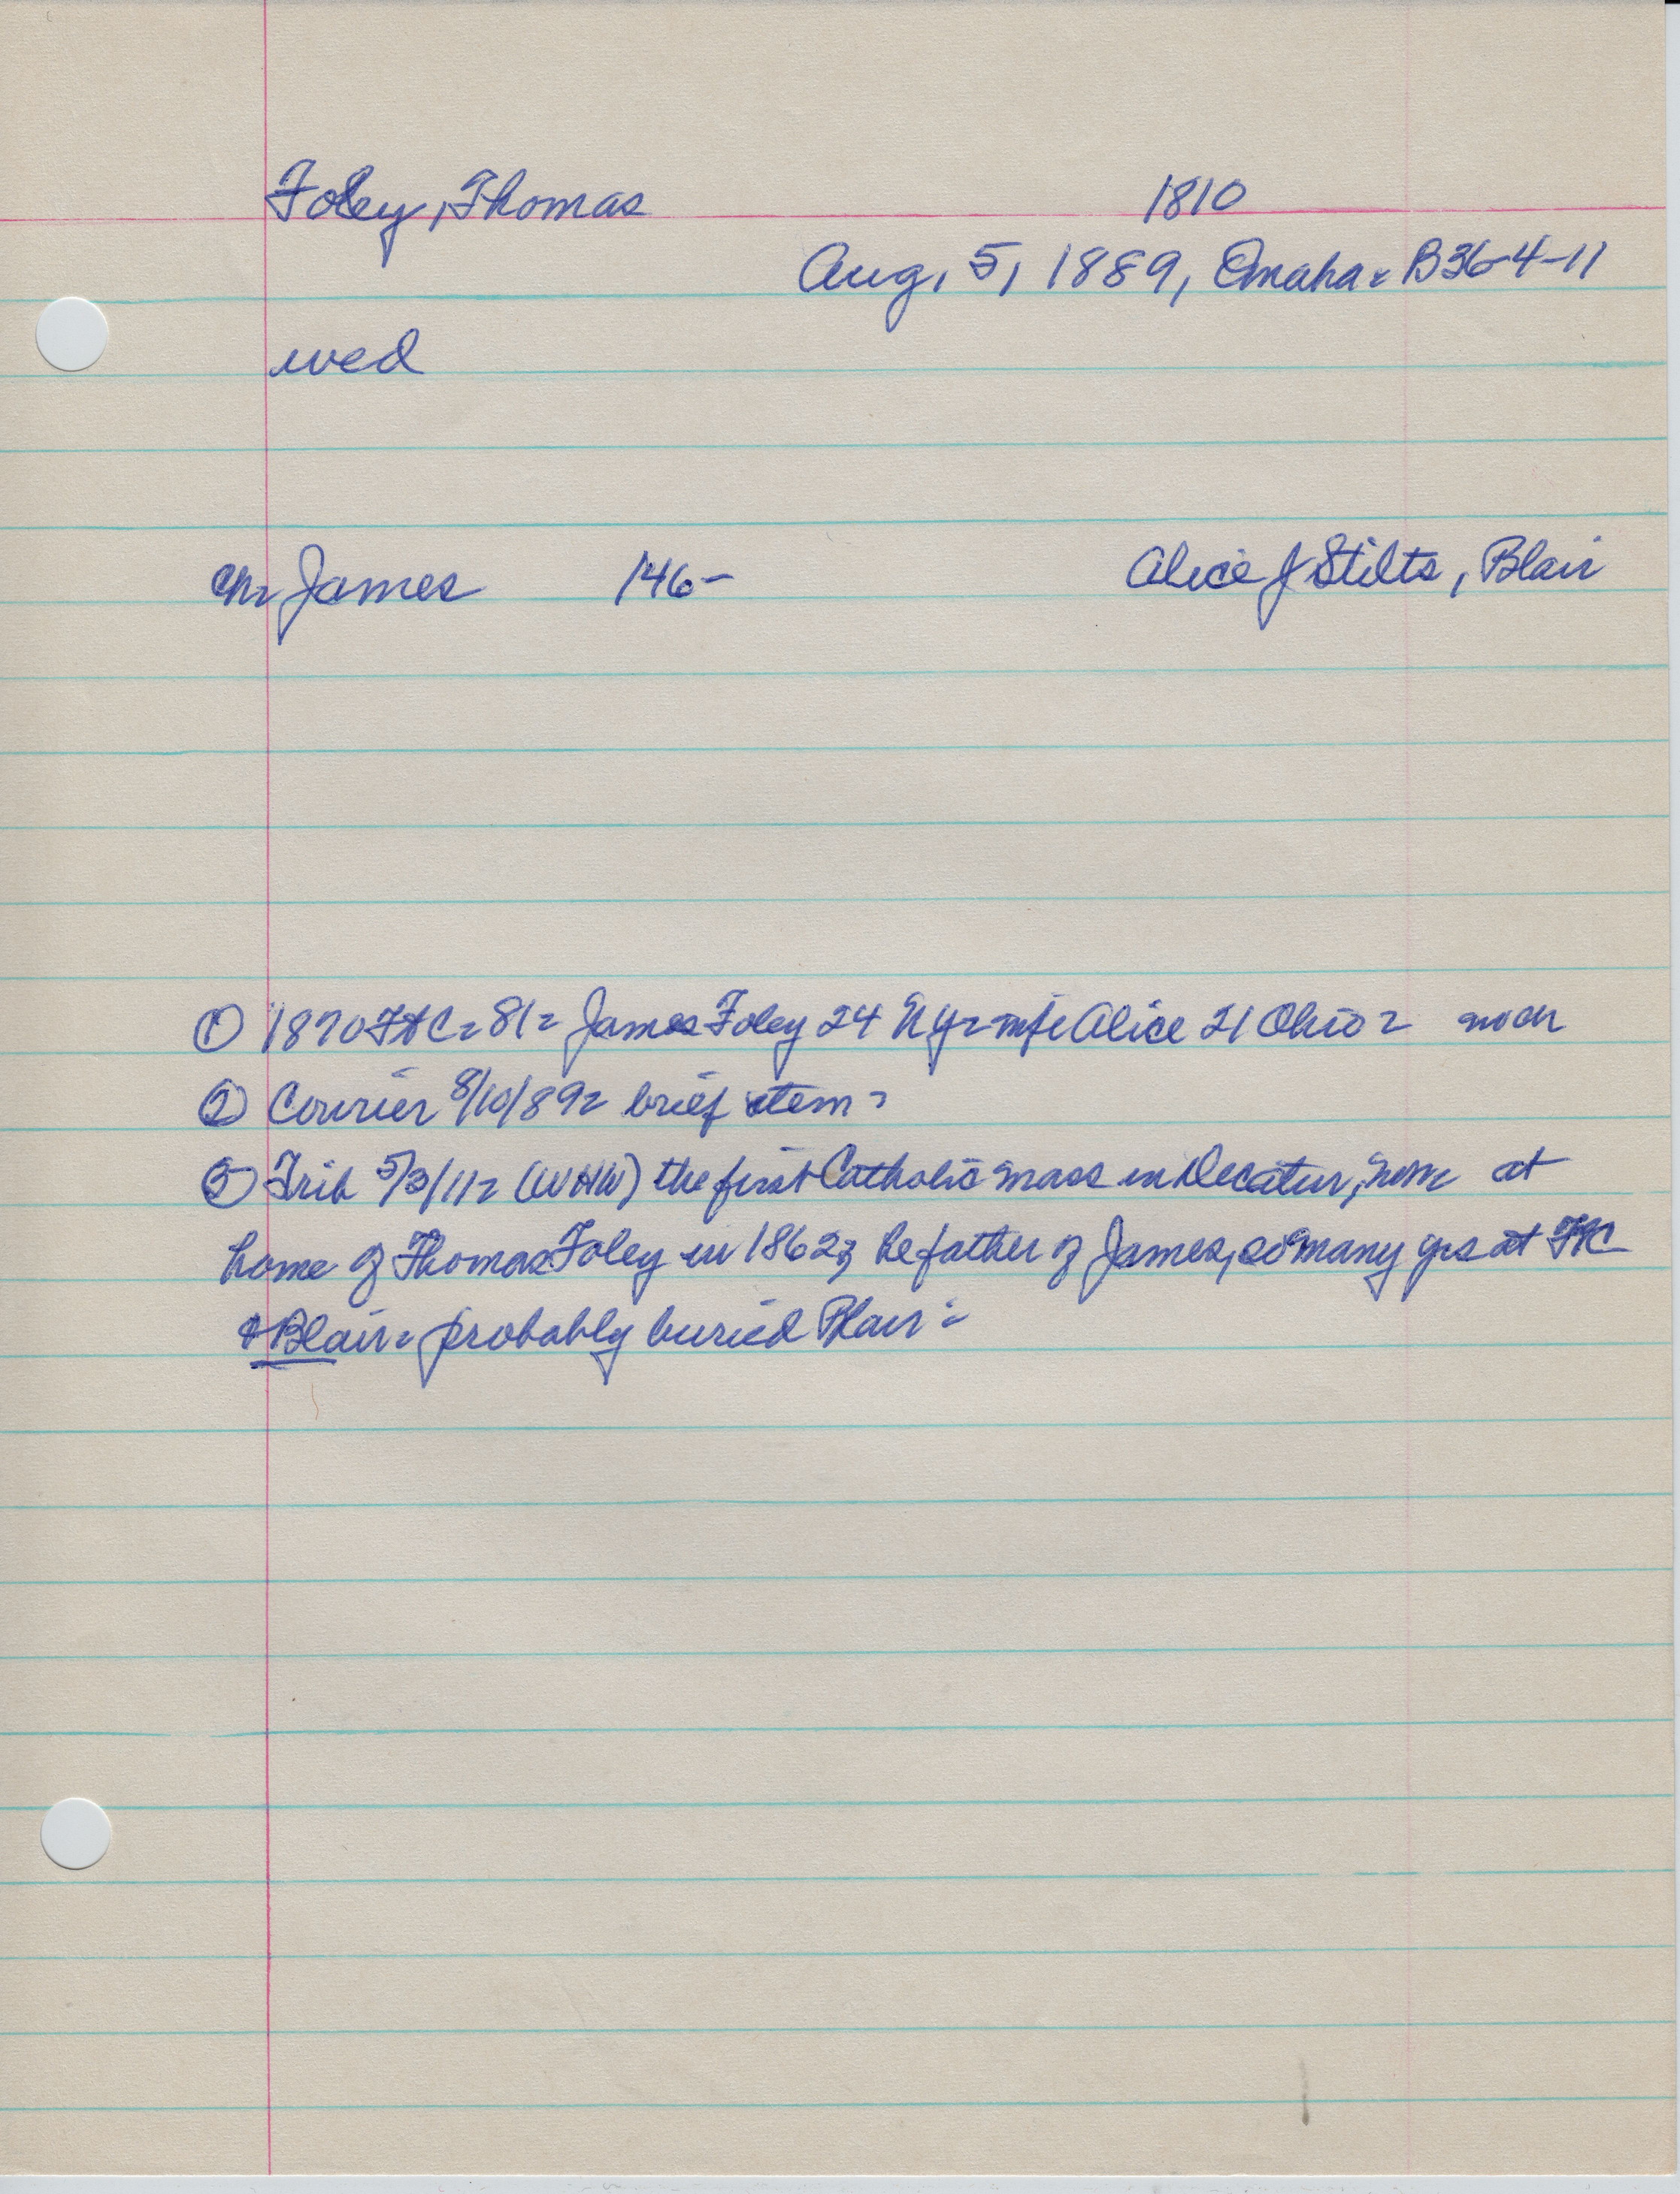 Foley, Thomas 1810
Aug, 5, 1889, Omaha = B36-4-11
wed
ch = James /46- Alice J Stilts, Blair
① 1870 Ft C = 81 = James Foley 24 NY = wife Alice 21 Ohio = no ch
② Courier 8/10/89 = brief item =
③ Trib 5/3/11 = (WHW) the first Catholic mass in Decatur, at
home of Thomas Foley in 1862; he father of James, so many yrs at FtC
& Blair = probably buried Blair =